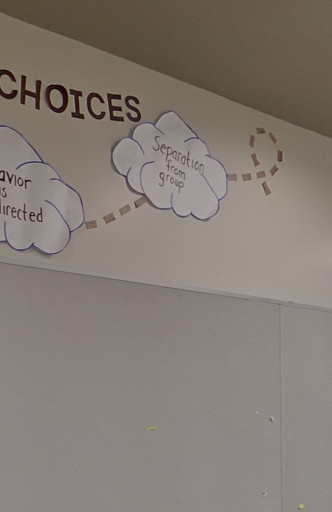 CHOICES
avior
is
directed
Separation
from
group